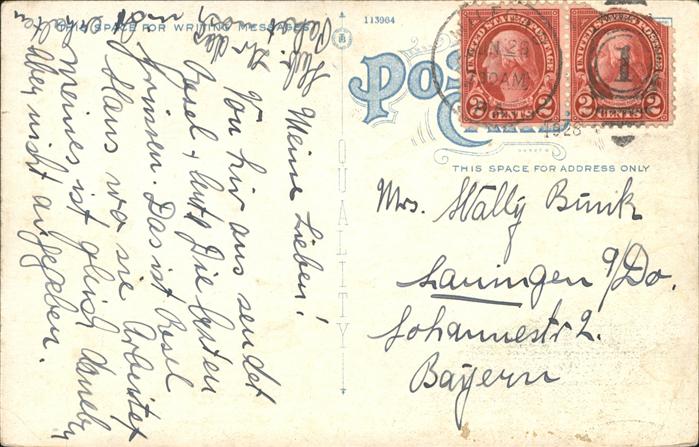 THIS SPACE FOR WRITING MESSAGES
113964
POST CARD
THIS SPACE FOR ADDRESS ONLY
QUALITY
UNITED STATES POSTAGE
2 CENTS 2
UNITED STATES POSTAGE
2 CENTS 2
JUN 28
AM
1928
1
Meine Lieben!
Von hir aus sendet
Resel & Ludg die besten
Grüssen. Das ist Resel
Haus wo sie Arbeitet
meines ist gleich daneben
aber nicht angegeben.
Mrs. Wally Bunk
Lauingen a/Do.
Johannestr 2.
Bayern